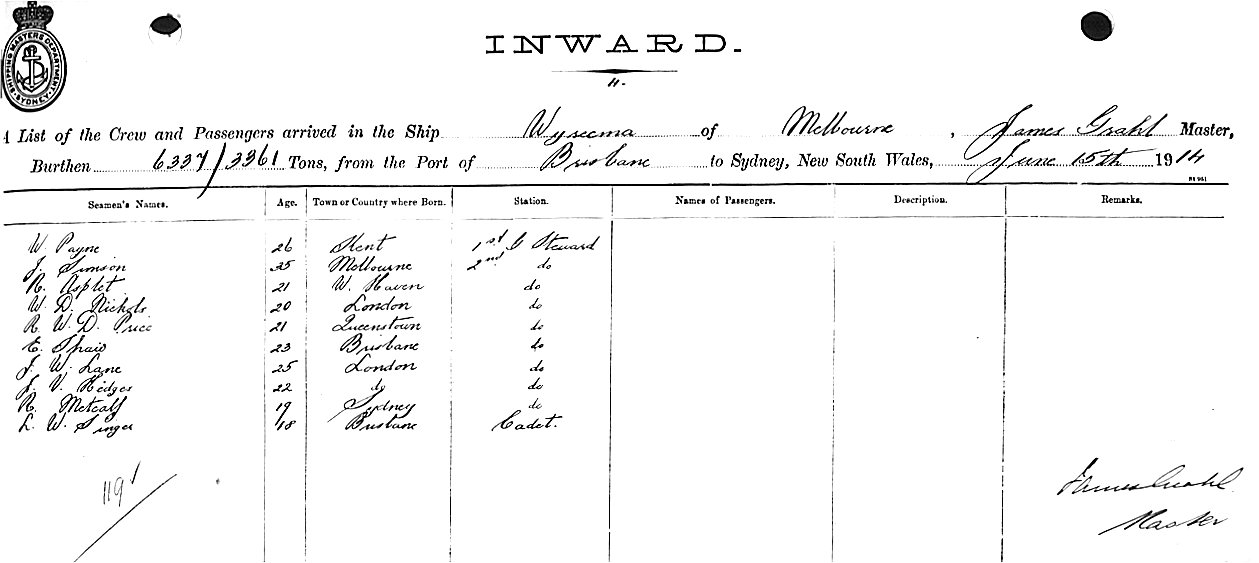 SHIPPING MASTERS DEPARTMENT SYDNEY
INWARD.
A List of the Crew and Passengers arrived in the Ship Wyreema of Melbourne, James Grahl Master,
Burthen 6337/3361 Tons, from the Port of Brisbane to Sydney, New South Wales, June 15th 1914
Seamen's Names. Age. Town or Country where Born. Station. Names of Passengers. Description. Remarks.
W. Payne 26 Kent 1st G Steward
J. Simson 35 Melbourne 2nd do
R. Asplet 21 W. Haven do
W. D. Nichols 20 London do
R. W. D. Price 21 Queenstown do
E. 23 Brisbane do
J. W. Lane 25 London do
J. V. Hedges 22 do do
R. Metcalf 19 Sydney do
L. W. Singer 18 Brisbane Cadet.
119
James Grahl
Master